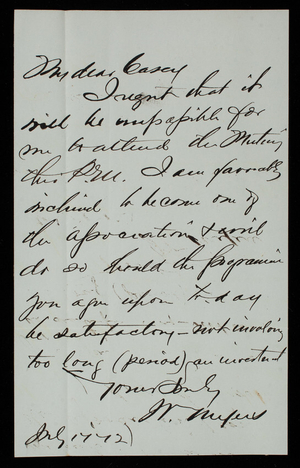 My dear Casey
I regret that it
will be impossible for
me to attend the Meeting
this P.M. I am favorably
inclined to become one of
the association & will
do so should the programme
you agree upon to-day
be satisfactory - not involving
too long (period) an investment
Yours truly
W. Myers